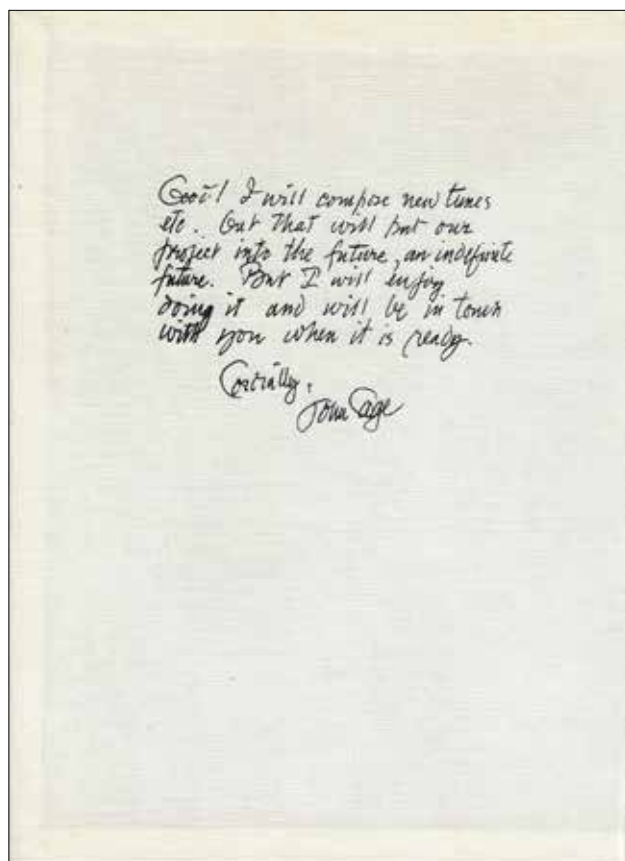 Good! I will compose new tunes
etc. But that will put our
project into the future, an indefinite
future. But I will enjoy
doing it and will be in touch
with you when it is ready.
Cordially,
John Cage